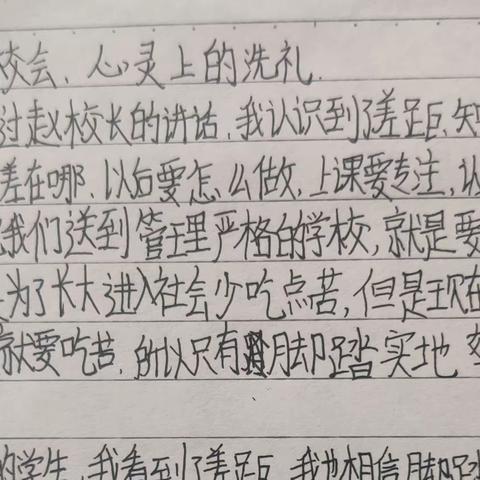 校会、心灵上的洗礼.
过赵校长的讲话,我认识到了差距,知
差在哪,以后要怎么做,上课要专注,认
我们送到管理严格的学校,就是要
为了长大进入社会少吃点苦,但是现在
就要吃苦,所以只有脚踏实地
的学生,我看到了差距,我也相信脚踏